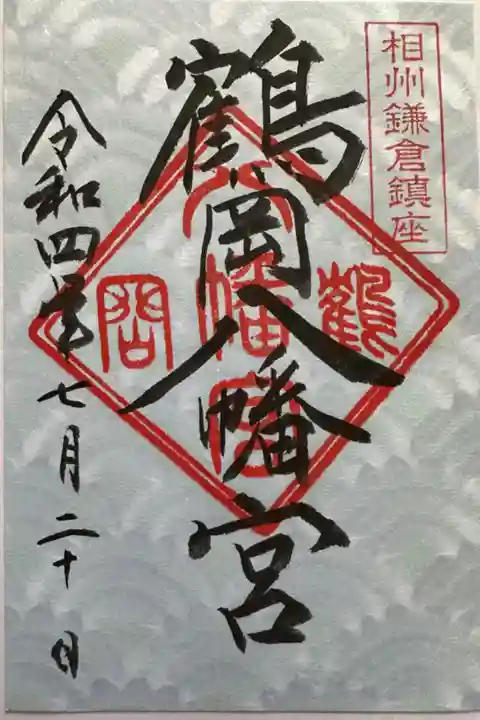 相州鎌倉鎮座
鶴岡八幡宮
鶴
八幡宮
岡
令和四年七月二十日